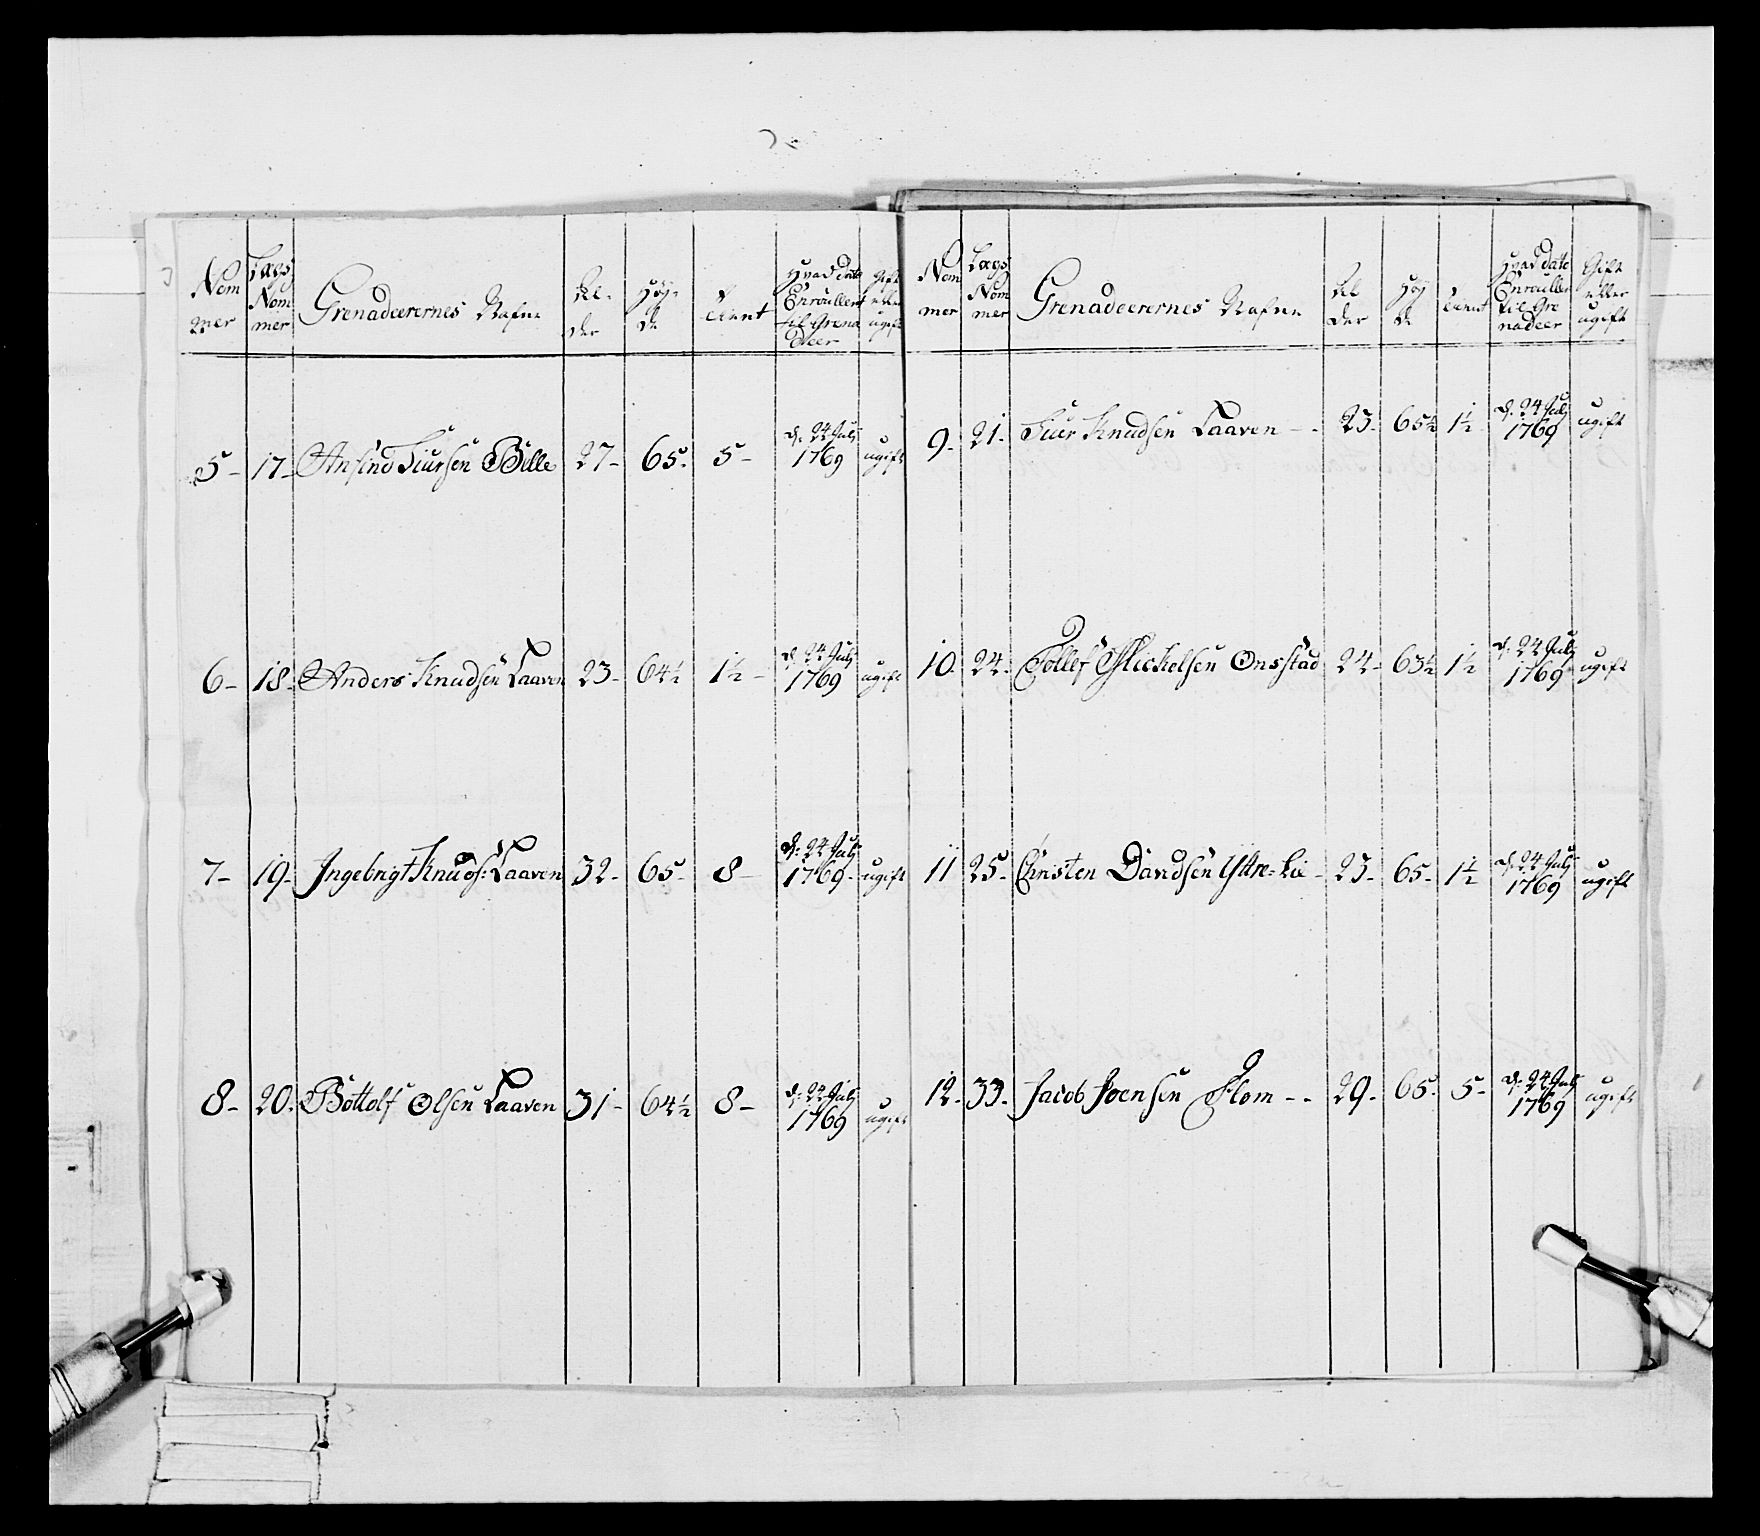 Nommer | Lægs Nommer | Grenadeerernes Nafne | Alder | Høyde | Tient | Hvad dato Enroullert til Grenadeer | Gift eller ugift
5 - | 17 - | Ansind Siursen Bille | 27 - | 65. | 5 - | d. 24 July 1769 | ugift
6 - | 18 - | Anders Knudsen Laaven | 23 - | 64½ | 1½ - | d. 24 July 1769 | ugift
7 - | 19 - | Ingebrigt Knuds: Laaven | 32 - | 65 - | 8 - | d: 24 July 1769 - | ugift
8 - | 20. | Bottolf Olsen Laaven | 31 - | 64½ | 8 - | d. 24 July 1769 | ugift
Nommer | Lægs Nommer | Grenadeerernes Nafne | Alder | Høyde | Tient | Hvad dato Enroullert til Grenadeer | Gift eller ugift
9 - | 21. | Siur Knudsen Laaven - - | 23. | 65½ | 1½ | d. 24 July 1769 | ugift
10 | 24. | Tollef Mickelsen Onsstad | 24 - | 63½ | 1½ | d. 24 July 1769 | ugift
11 | 25 - | Christen Davidsen Yttre=Lie - | 23 - | 65 - | 1½ | d. 24 July 1769 | ugift
12. | 33 - | Jacob Joensen Flom - - | 29 - | 65. | 5 - | d: 24 July 1769 | ugift